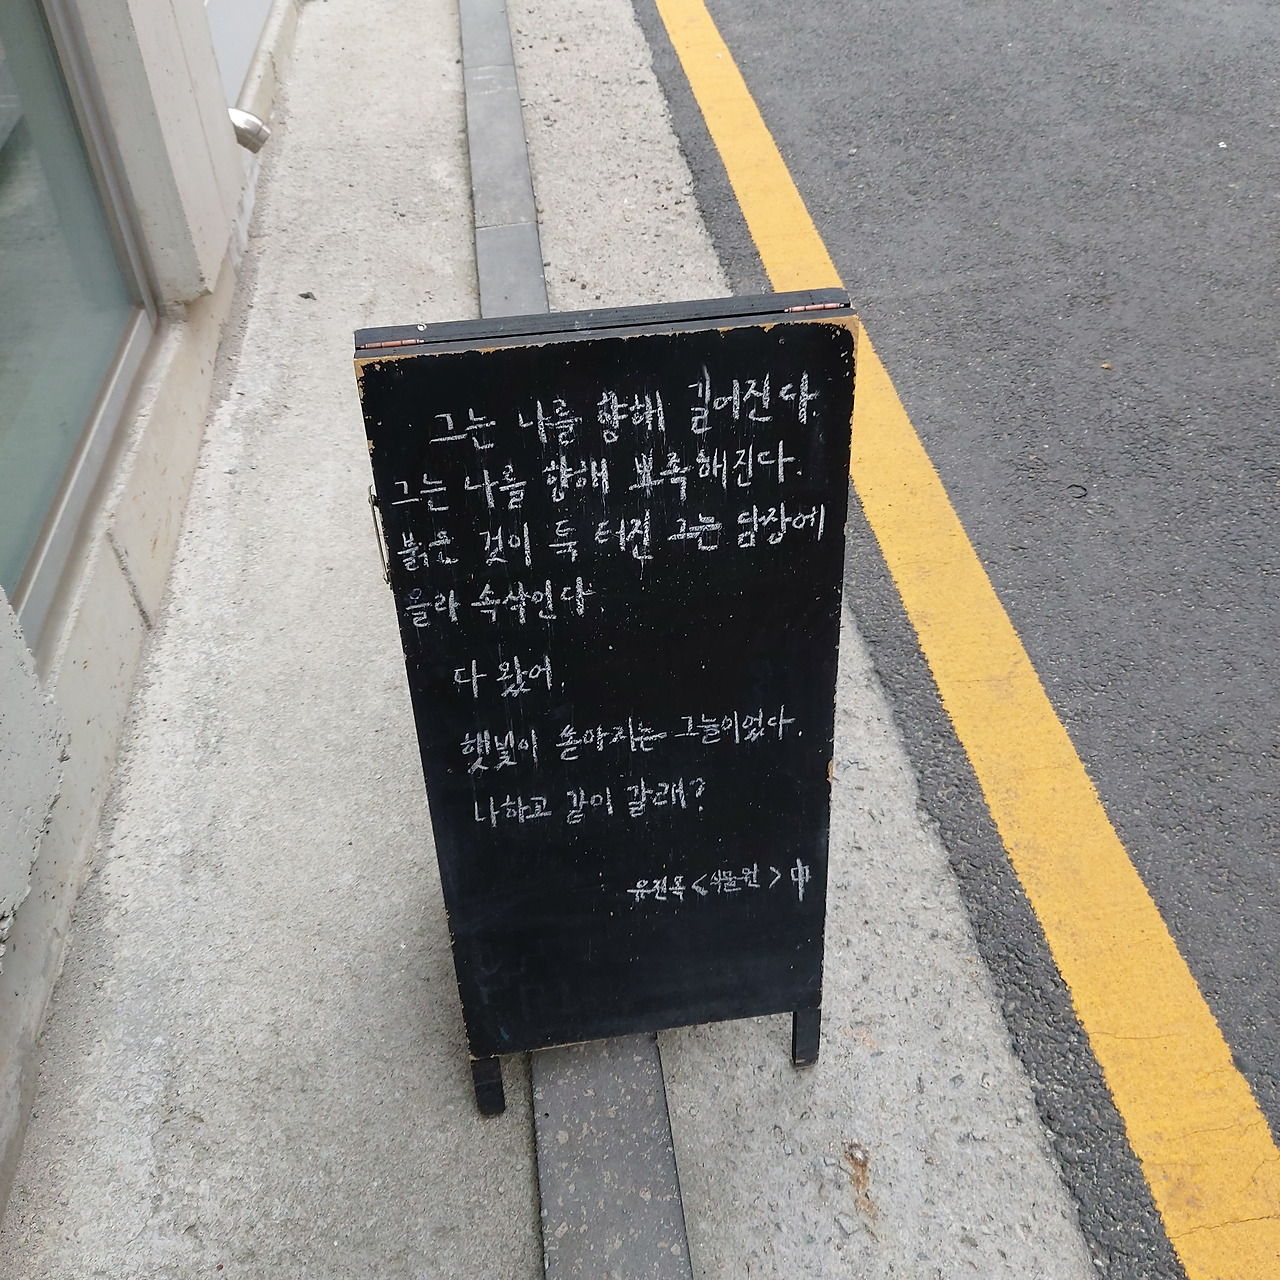 그는 나를 향해 길어진다.
그는 나를 향해 뾰족해진다.
붉은 것이 툭 터진 그는 담장에
올라 속삭인다.
다 왔어.
햇빛이 쏟아지는 그늘이었다.
나하고 같이 갈래?
유진목 <식물원> 中